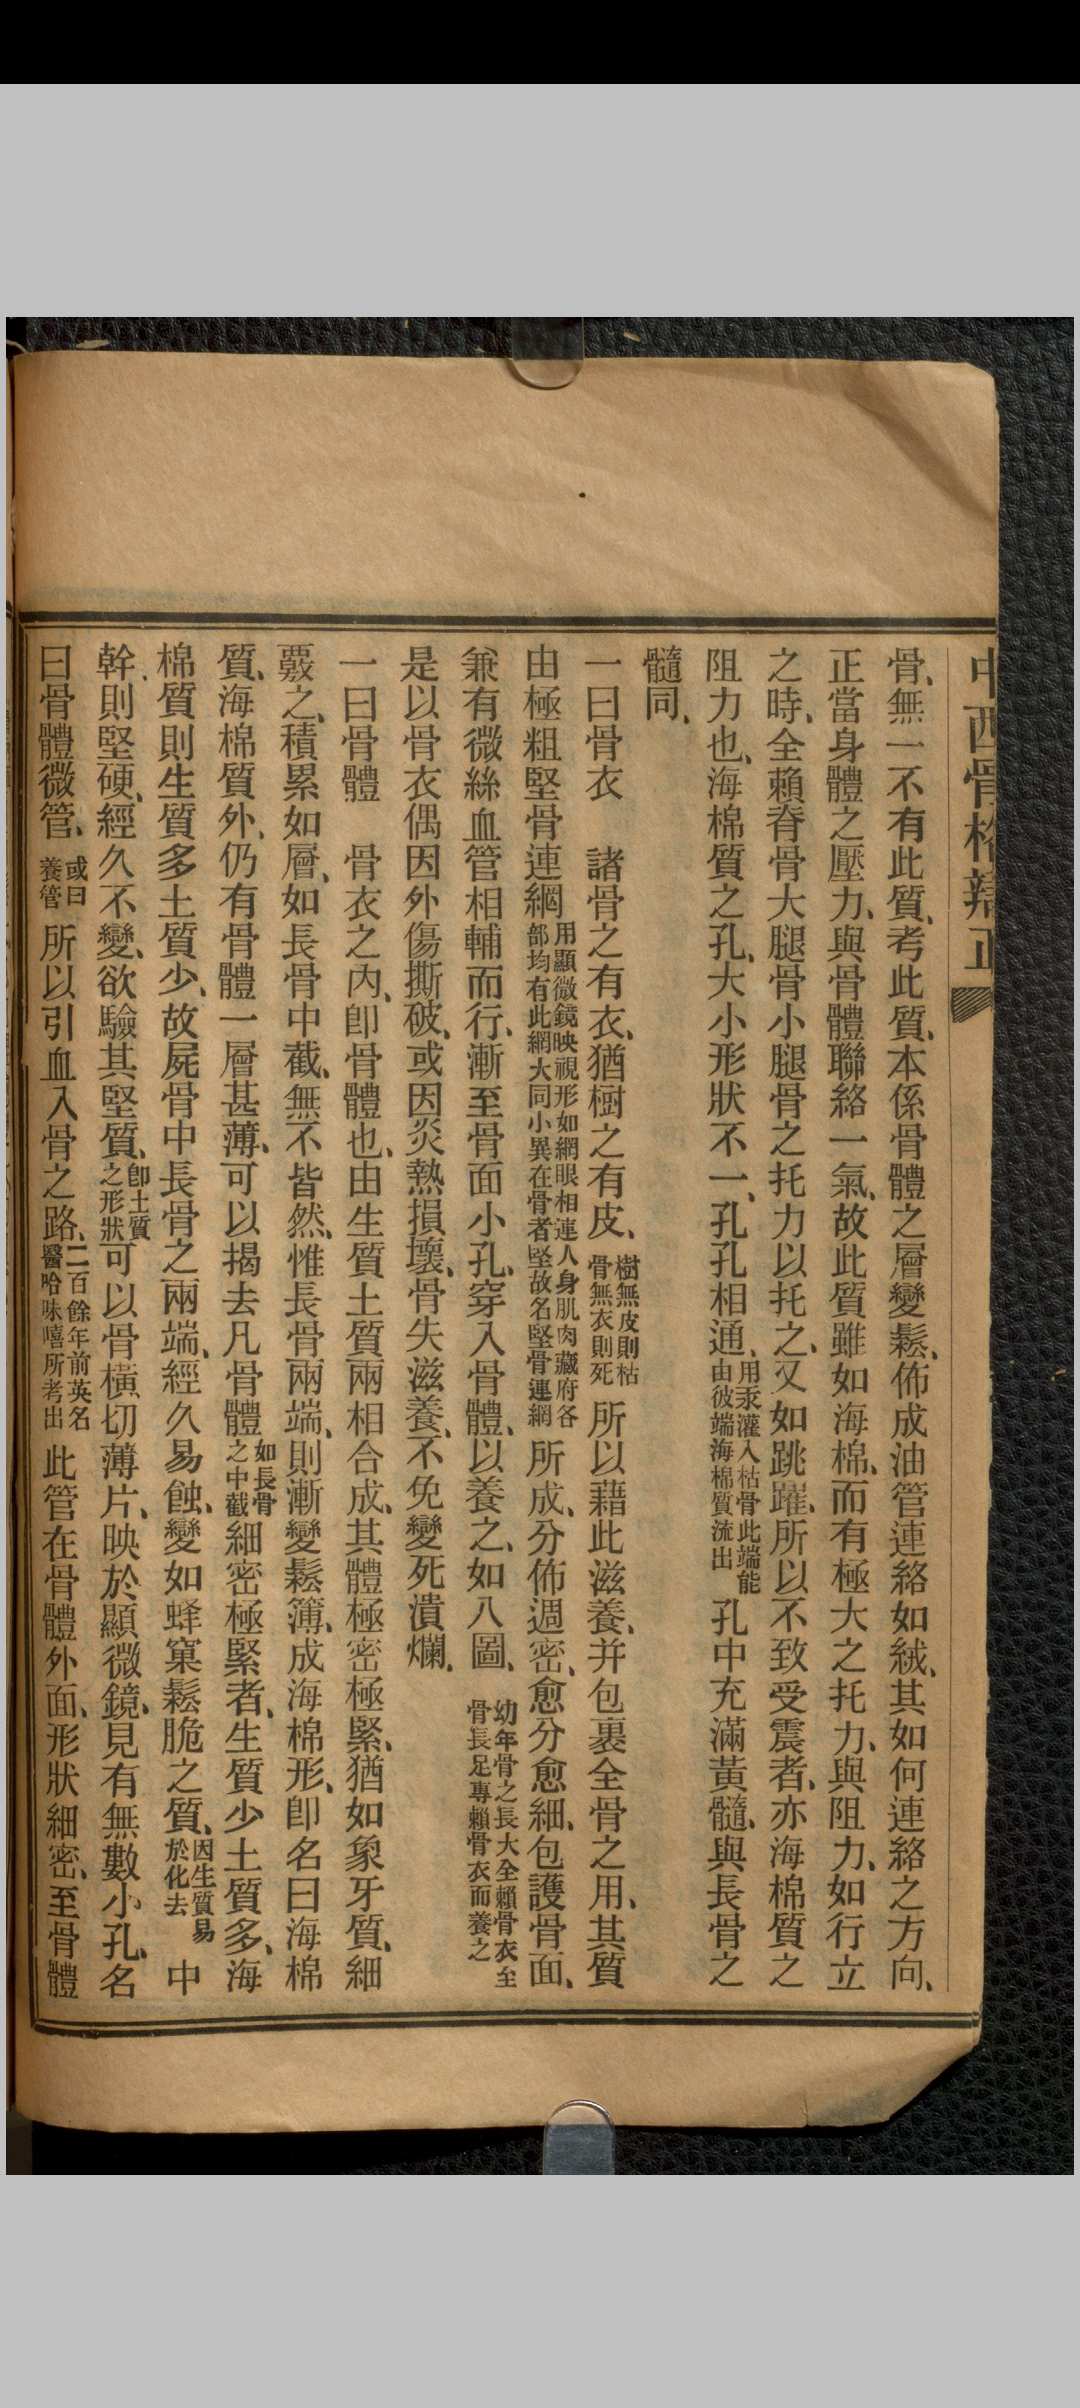 中西骨格辯正
骨、無一不有此質、考此質、本係骨體之層變鬆、佈成油管連絡如絨、其如何連絡之方向、
正當身體之壓力、與骨體聯絡一氣、故此質雖如海棉、而有極大之托力、與阻力、如行立
之時、全賴脊骨大腿骨小腿骨之托力以托之、又如跳躍、所以不致受震者、亦海棉質之
阻力也、海棉質之孔、大小形狀不一、孔孔相通、用汞灌入枯骨此端能由彼端海棉質流出孔中充滿黃髓、與長骨之
髓同、
一曰骨衣 諸骨之有衣、猶樹之有皮、樹無皮則枯骨無衣則死所以藉此滋養、并包裹全骨之用、其質
由極粗堅骨連網用顯微鏡映視形如網眼相連人身肌肉藏府各部均有此網大同小異在骨者堅故名堅骨連網所成、分佈週密、愈分愈細、包護骨面、
兼有微絲血管相輔而行、漸至骨面小孔、穿入骨體、以養之、如八圖、幼年骨之長大全賴骨衣至骨長足專賴骨衣而養之
是以骨衣偶因外傷撕破、或因炎熱損壞、骨失滋養、不免變死潰爛、
一曰骨體 骨衣之內、卽骨體也、由生質土質兩相合成、其體極密極緊、猶如象牙質、細
覈之、積累如層、如長骨中截、無不皆然、惟長骨兩端、則漸變鬆簿、成海棉形、卽名曰海棉
質、海棉質外、仍有骨體一層甚薄、可以揭去凡骨體如長骨之中截細密極緊者、生質少土質多、海
棉質則生質多土質少、故屍骨中長骨之兩端、經久易蝕、變如蜂窠鬆脆之質、因生質易於化去 中
幹、則堅硬、經久不變、欲驗其堅質、卽土質之形狀可以骨橫切薄片、映於顯微鏡、見有無數小孔、名
曰骨體微管、或曰養管所以引血入骨之路、二百餘年前英名醫哈味嘻所考出此管在骨體外面、形狀細密、至骨體